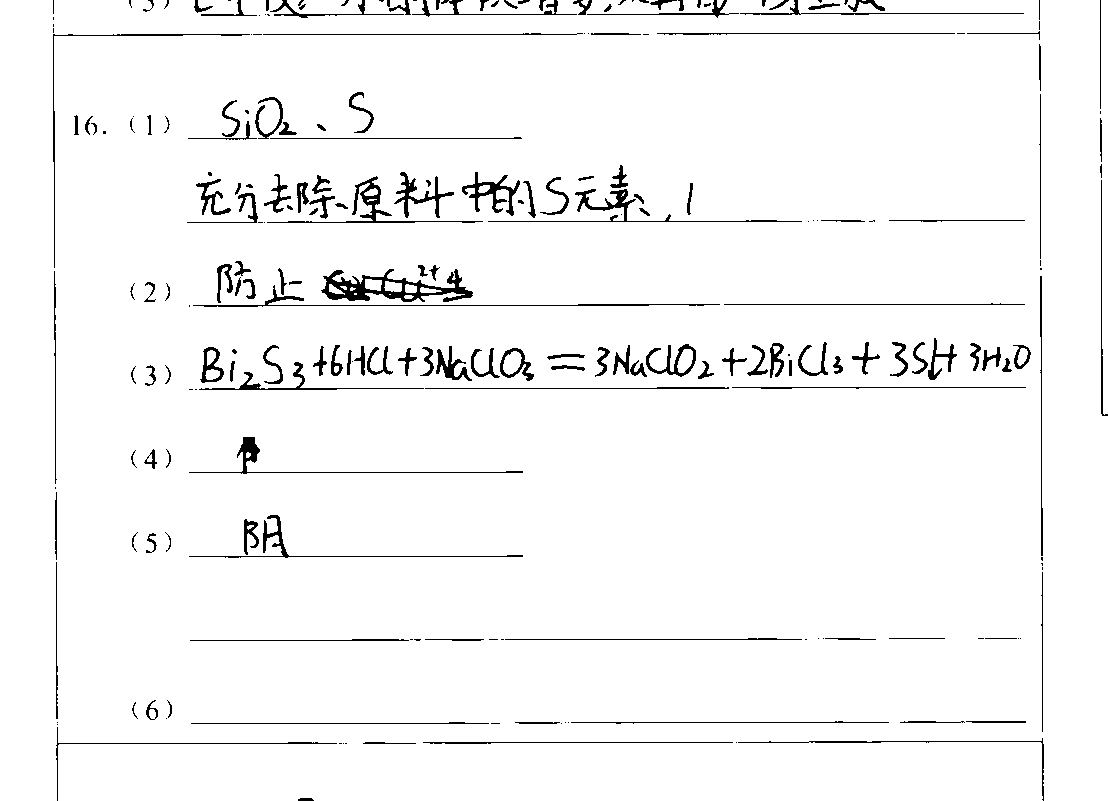 16.（1） SiO₂、S
充分去除原料中的S元素，1
（2） 防止
（3） Bi₂S₃+6HCl+3NaClO₃=3NaClO₂+2BiCl₃+3S↓+3H₂O
（4）
（5） 阴
（6）